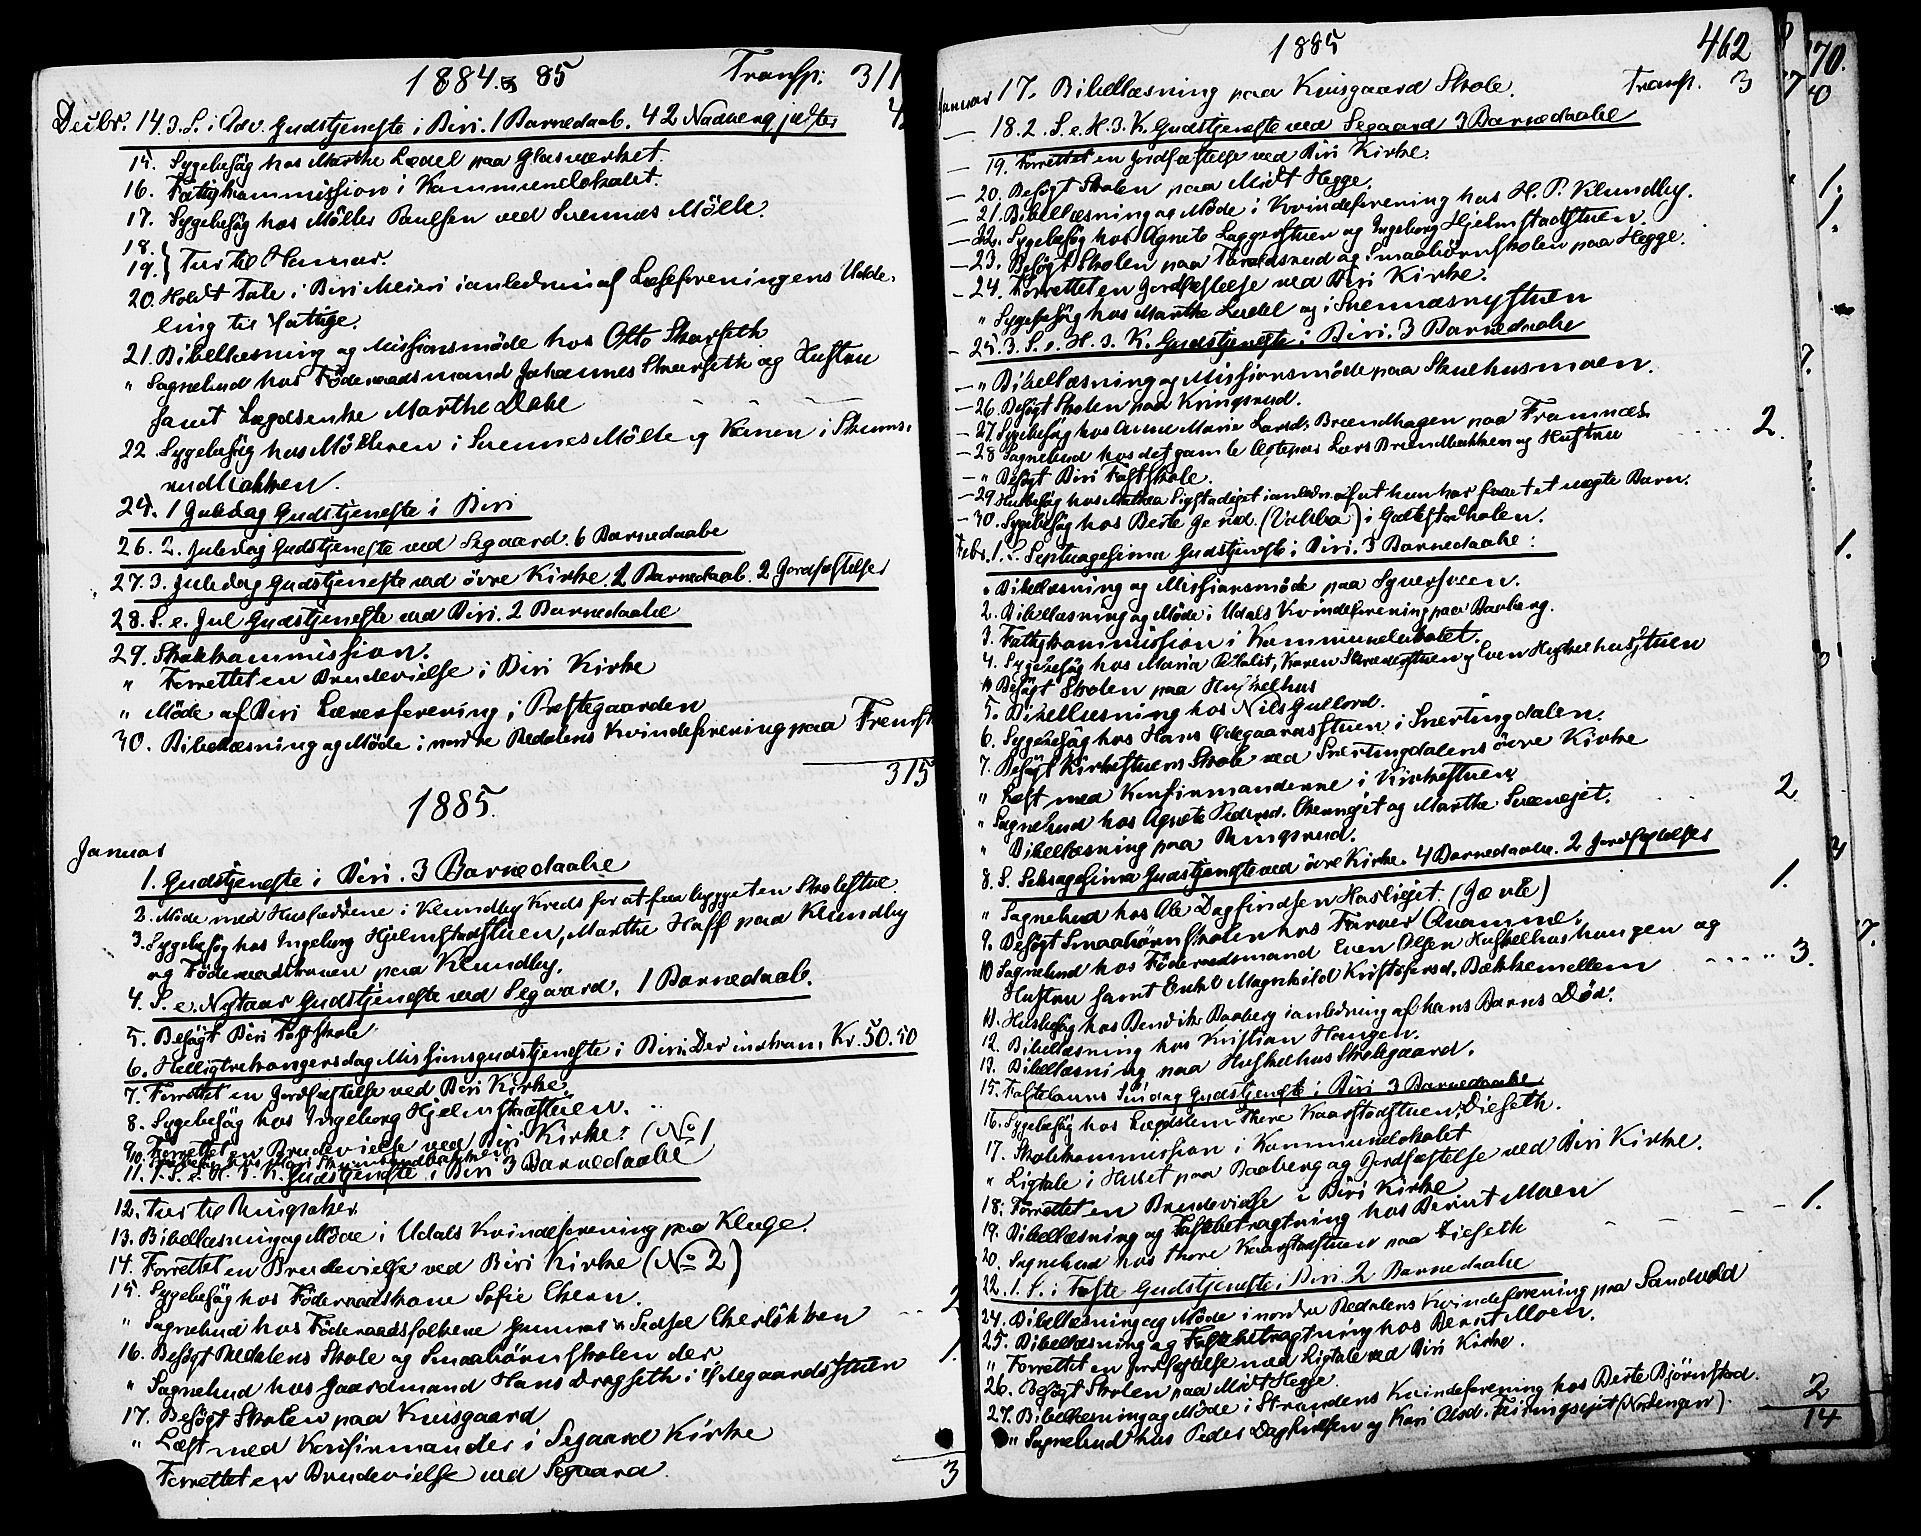 1884 & 85 Transp: 311
Decbr. 14. 3. S. i Adv. Gudstjeneste i Biri. 1 Barnedaab. 42 Nadvergjæster
15. Sygebesøg hos Marthe Lædel paa Glasværket.
16. Fattigkommission i Kommunelokalet.
17. Sygebesøg hos Møller Paulsen ved Svennæs Mølle.
18.
19. } Tur til Hamar.
20. Holdt Tale i Biri Meieri i anledning af Læseforeningens Udde-
ling til Fattige.
21. Bibellæsning og Missionsmøde hos Otto Skarseth
" Sognebud hos Föderaadsmand Johannes Skarseth og Hustru
samt Lægdsenke Marthe Dahl
22 Sygebesøg hos Mølleren i Svennes Mølle og Konen i Skums-
rudbakken.
25. 1 Juledag Gudstjeneste i Biri
26. 2. Juledag Gudstjeneste ved Segaard. 6 Barnedaabe
27. 3. Juledag Gudstjeneste ved øvre Kirke. 2 Barnedaab. 2 Jordfæstelser
28. S. e. Jul Gudstjeneste ved Biri. 2 Barnedaabe
29. Skolekommission.
" Forrettet en Brudevielse i Biri Kirke
" Møde af Biri Lærerforening i Prestegaarden
30. Bibellæsning og Møde i nordre Redalens Kvindeforening paa
315
1885.
Januar
1. Gudstjeneste i Biri. 3 Barnedaabe
2. Møde med Husfædrene i Klundby Kreds for at faa bygget en Skolestue.
3. Sygebesøg hos Ingeborg Hjelmstadstuen, Marthe Haff paa Klundby
og Föderaadskonen paa Klundby.
4. S. e. Nytaar Gudstjeneste ved Segaard. 1 Barnedaab.
5. Besøgt Biri Fastskole
6. Helligtrekongersdag Missionsgudstjeneste i Biri. Der indkom Kr. 50.50
7. Forrettet en Jordfæstelse ved Biri Kirke
8. Sygebesøg hos Ingeborg Hjelmstadstuen.
9. Forrettet en Brudevielse ved Biri Kirke. (No 1
11. 1. S. e. H. 3. K. Gudstjeneste i Biri 3 Barnedaabe
12. Tur til Ringsaker.
13. Bibellæsning og Møde i Udals Kvindeforening paa Kluge.
14. Forrettet en Brudevielse ved Biri Kirke (No 2)
15. Sygebesøg hos Föderaadskone Sofie Ekern.
" Sognebud hos Föderaadsfolkene Gunnar & Sidsel Ekerløkken 2
16. Besøgt Redalens Skole og Smaabørnskolen der
" Sognebud hos Gaardmand Hans Dragseth i Ødegaardsstuen 1.
17. Besøgt Skolen paa Kuisgaard
" Læst med Konfirmander i Segaard Kirke
Forrettet en Brudevielse ved Segaard. 3
1885 462
Januar 17. Bibellæsning paa Kuisgaard Skole. Transp. 3
— 18. 2. S. e. H. 3. K. Gudstjeneste ved Segaard 3 Barnedaabe
— 19. Forrettet en Jordfæstelse ved Biri Kirke.
— 20. Besøgt Skolen paa Midt Hegge.
— 21. Bibellæsning og Møde i Kvindeforening hos H. P. Klundby.
— 22. Sygebesøg hos Agnete Laggerstuen og Ingeborg Hjelmstadstuen.
— 23. Besøgt Skolen paa Taraldsrud og Smaabørnskolen paa Hegge.
— 24. Forrettet en Jordfæstelse ved Biri Kirke.
" Sygebesøg hos Marthe Lædel og i Svennæsnystuen
— 25. 3. S. e. H. 3. K. Gudstjeneste i Biri. 3 Barnedaabe
— " Bibellæsning og Missionsmøde paa Skuehusmoen.
— 26. Besøgt Skolen paa Kringsrud.
— 27. Sygebesøg hos Anne Marie Larsd. Brændhagen paa Framnæs
— 28 Sognebud hos det gamle Ægtepar Lars Brændbakken og Hustru 2.
— " Besøgt Biri Fastskole.
— 29 Husbesøg hos i anledn. af at hun har faaet et uægte Barn.
— 30. Sygebesøg hos Berte i Gælestadholen.
Febr. 1. S. Septuagesima Gudstjeneste i Biri. 3 Barnedaabe:
" Bibellæsning og Missionsmøde paa Syversveen.
2. Bibellæsning og Møde i Udals Kvindeforening paa Baaberg.
3. Fattigkommission i Kommunelokalet.
4. Sygebesøg hos Maria Karen Skrædderstuen og Even Huskelhusstuen
" Besøgt Skolen paa Huskelhus
5. Bibellæsning hos Nils Gullord.
6. Sygebesøg hos Hans Ødegaardsstuen i Snertingdalen.
7. Besøgt Kirkestuens Skole ved Snertingdalens øvre Kirke
" Læst med Konfirmanderne i Kirkestuen
" Sognebud hos Agnete Pedersd. og Marthe 2
" Bibellæsning paa Ringsrud.
8. S. Seksagesima Gudstjeneste ved øvre Kirke. 4 Barnedaabe. 2 Jordfæstelser
" Sognebud hos Ole Dagfindsen Haslieiet. 1.
9. Besøgt Smaabørnskolen hos Farver Quamme.
10 Sognebud hos Föderaadsmand Even Olsen Huskelhushaugen og
Hustru samt Enke Magnhild Kristofersd. Bækkemellem 3.
11. Husbesøg hos Bendik Baaberg i anledning af hans Barns Død.
12. Bibellæsning hos Kristian Haugen.
13. Bibellæsning paa Huskelhus Skolegaard.
15. Fastelavns Søndag Gudstjeneste i Biri 3 Barnedaabe
16. Sygebesøg hos Lægdslem Thore Kaarstadstuen, Dieseth.
17. Skolekommission i Kommunelokalet
" Ligtale i Huset paa Baaberg og Jordfæstelse ved Biri Kirke.
18. Forrettet en Brudevielse i Biri Kirke
19. Bibellæsning og Fastebetragtning hos Bernt Moen
20. Sognebud hos Thore Kaarstadstuen paa Dieseth 1.
22. 1. S. i Faste Gudstjeneste i Biri. 2 Barnedaabe
24. Bibellæsning og Møde i nordre Redalens Kvindeforening paa Sandvold
25. Bibellæsning og Fastebetragtning hos Bernt Moen.
" Forrettet en Jordfæstelse med Ligtale ved Biri Kirke.
26. Besøgt Skolen paa Midt Hegge.
27. Bibellæsning og Møde i Strandens Kvindeforening hos Berte Bjørnstad.
" Sognebud hos Peder Dagfindsen og Kari Olsd. (Nordengen). 2
14